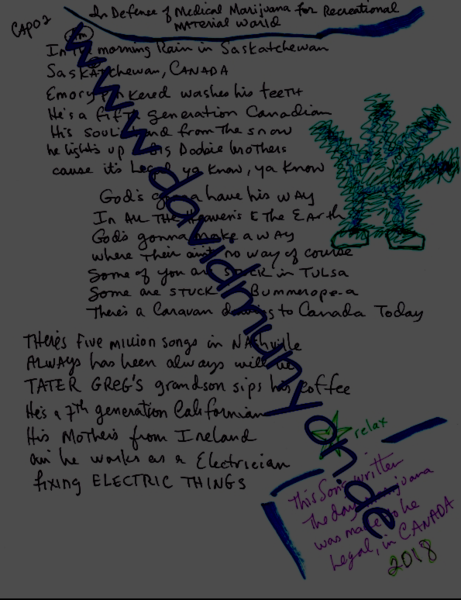 In Defence of Medical Marijuana for Recreational
MATERIAL World
CAPO2
In The morning Rain in Saskatchewan
Saskatchewan, CANADA
Emory washes his teeth
He's a fifth generation Canadian
His soul and from the snow
he lights up Big Doobie brothers
cause it's legal ya know, ya know
God's have his way
In ALL THE Heaven's & The Earth
God's gonna make a way
where Their aint no way of course
Some of you are STUCK in TULSA
Some are STUCK
There's a Caravan to Canada Today
There's Five million songs in Nashville
ALWAYS has been always will be
TATER GREG'S grandson sips his coffee
He's a 7th generation Californian
His Mother's from Ireland
he works as a Electrician
fixing ELECTRIC THINGS
relax
This Song written
The day marijuana
was made to be
Legal, in CANADA
2018
www.davidmunyon.de